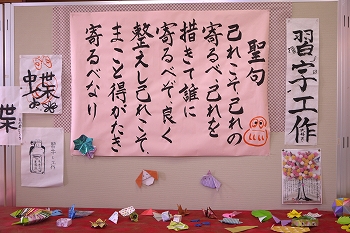 習字工作
聖句
己れこそ己れの
寄るべ己れを
措きて誰に
寄るべぞ良く
整えし己れこそ、
まこと得がたき
寄るべなり
蝶
蝶